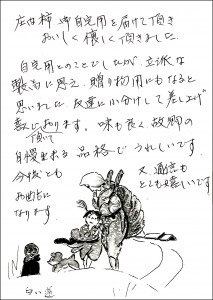 庄内柿 御自宅用を届けて頂き
おいしく懐しく頂きました
自宅用とのことでしたが、立派な
製品に思え 贈り物用にもなると
思いまして 友達に小分けして差し上げ
喜んで頂いております。味も良く故郷の
自慢出来る品格でうれしいです
今後とも 又通信も
お世話に とても嬉しいです
なります